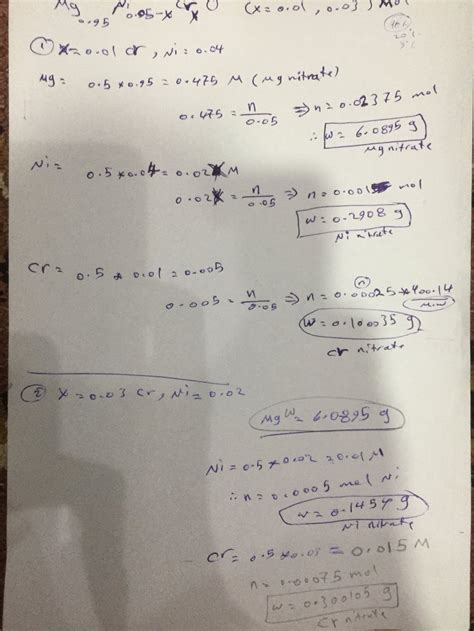 Mg 0.95 Ni 0.05-x Cr x O (x = 0.01 , 0.03) Mol
① x = 0.01 Cr , Ni = 0.04
Mg = 0.5 * 0.95 = 0.475 M (Mg nitrate)
0.475 = n/0.05 ⇒ n = 0.02375 mol
∴ w = 6.0895 g
Mg nitrate
Ni = 0.5 * 0.04 = 0.02 M
0.02 = n/0.05 ⇒ n = 0.001 mol
w = 0.2908 g
Ni nitrate
Cr = 0.5 * 0.01 = 0.005
0.005 = n/0.05 ⇒ n = 0.00025 * 400.14
w = 0.10035 g
Cr nitrate
② x = 0.03 Cr , Ni = 0.02
Mg w = 6.0895 g
Ni = 0.5 * 0.02 = 0.01 M
∴ n = 0.0005 mol Ni
w = 0.1454 g
Ni nitrate
Cr = 0.5 * 0.03 = 0.015 M
n = 0.00075 mol
w = 0.300105 g
Cr nitrate